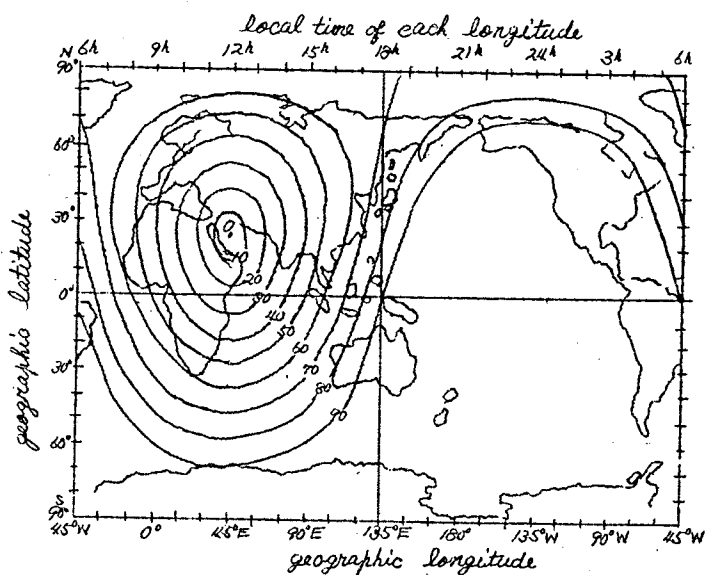 local time of each longitude
N 6h 9h 12h 15h 18h 21h 24h 3h 6h
90°
60°
30°
0°
30°
60°
S
90°
geographic latitude
0
10
20
30
40
50
60
70
80
90
45°W 0° 45°E 90°E 135°E 180° 135°W 90°W 45°W
geographic longitude